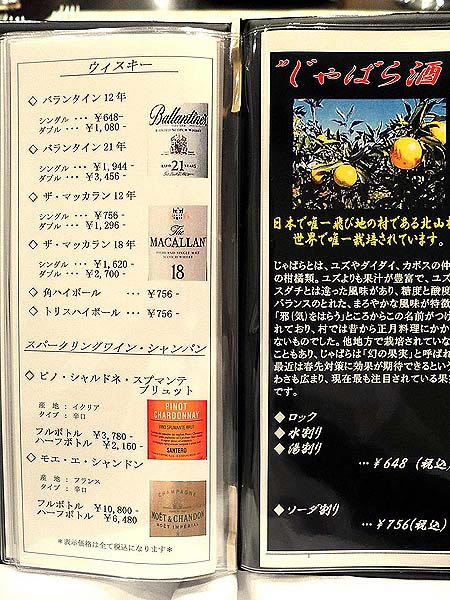 ウィスキー
◇ バランタイン 12年
シングル ・・・ ￥648-
ダブル ・・・ ￥1,080-
◇ バランタイン 21年
シングル ・・・ ￥1,944-
ダブル ・・・ ￥3,456-
Ballantine's
21
◇ ザ・マッカラン 12年
シングル ・・・ ￥756-
ダブル ・・・ ￥1,296-
◇ ザ・マッカラン 18年
シングル ・・・ ￥1,620-
ダブル ・・・ ￥2,700-
The
MACALLAN
HIGHLAND SINGLE MALT
SCOTCH WHISKY
18
◇ 角ハイボール ￥756-
◇ トリスハイボール ・・・ ￥756-
スパークリングワイン・シャンパン
◇ ピノ・シャルドネ・スプマンテ
ブリュット
産 地 : イタリア
タイプ : 辛口
フルボトル ￥3,780-
ハーフボトル ￥2,160-
PINOT
CHARDONNAY
VINO SPUMANTE BRUT
SANTERO
◇ モエ・エ・シャンドン
産 地 : フランス
タイプ : 辛口
フルボトル ￥10,800-
ハーフボトル ￥6,480
CHAMPAGNE
MOËT & CHANDON
MOËT IMPÉRIAL
＊表示価格は全て税込になります＊
"じゃばら酒
日本で唯一飛び地の村である北山村
世界で唯一栽培されています。
じゃばらとは、ユズやダイダイ、カボスの仲
の柑橘類。ユズよりも果汁が豊富で、ユズ
スダチとは違った風味があり、糖度と酸度
バランスのとれた、まろやかな風味が特徴
「邪（気）をはらう」ところからこの名前がつけ
れており、村では昔から正月料理にかか
ないものでした。他地方で栽培されていな
こともあり、じゃばらは「幻の果実」と呼ばれ
最近は春先対策に効果が期待できるという
わさも広まり、現在最も注目されている果実
です。
◆ロック
◆水割り
◆湯割り
…￥648（税込）
◆ソーダ割り
…￥756（税込）